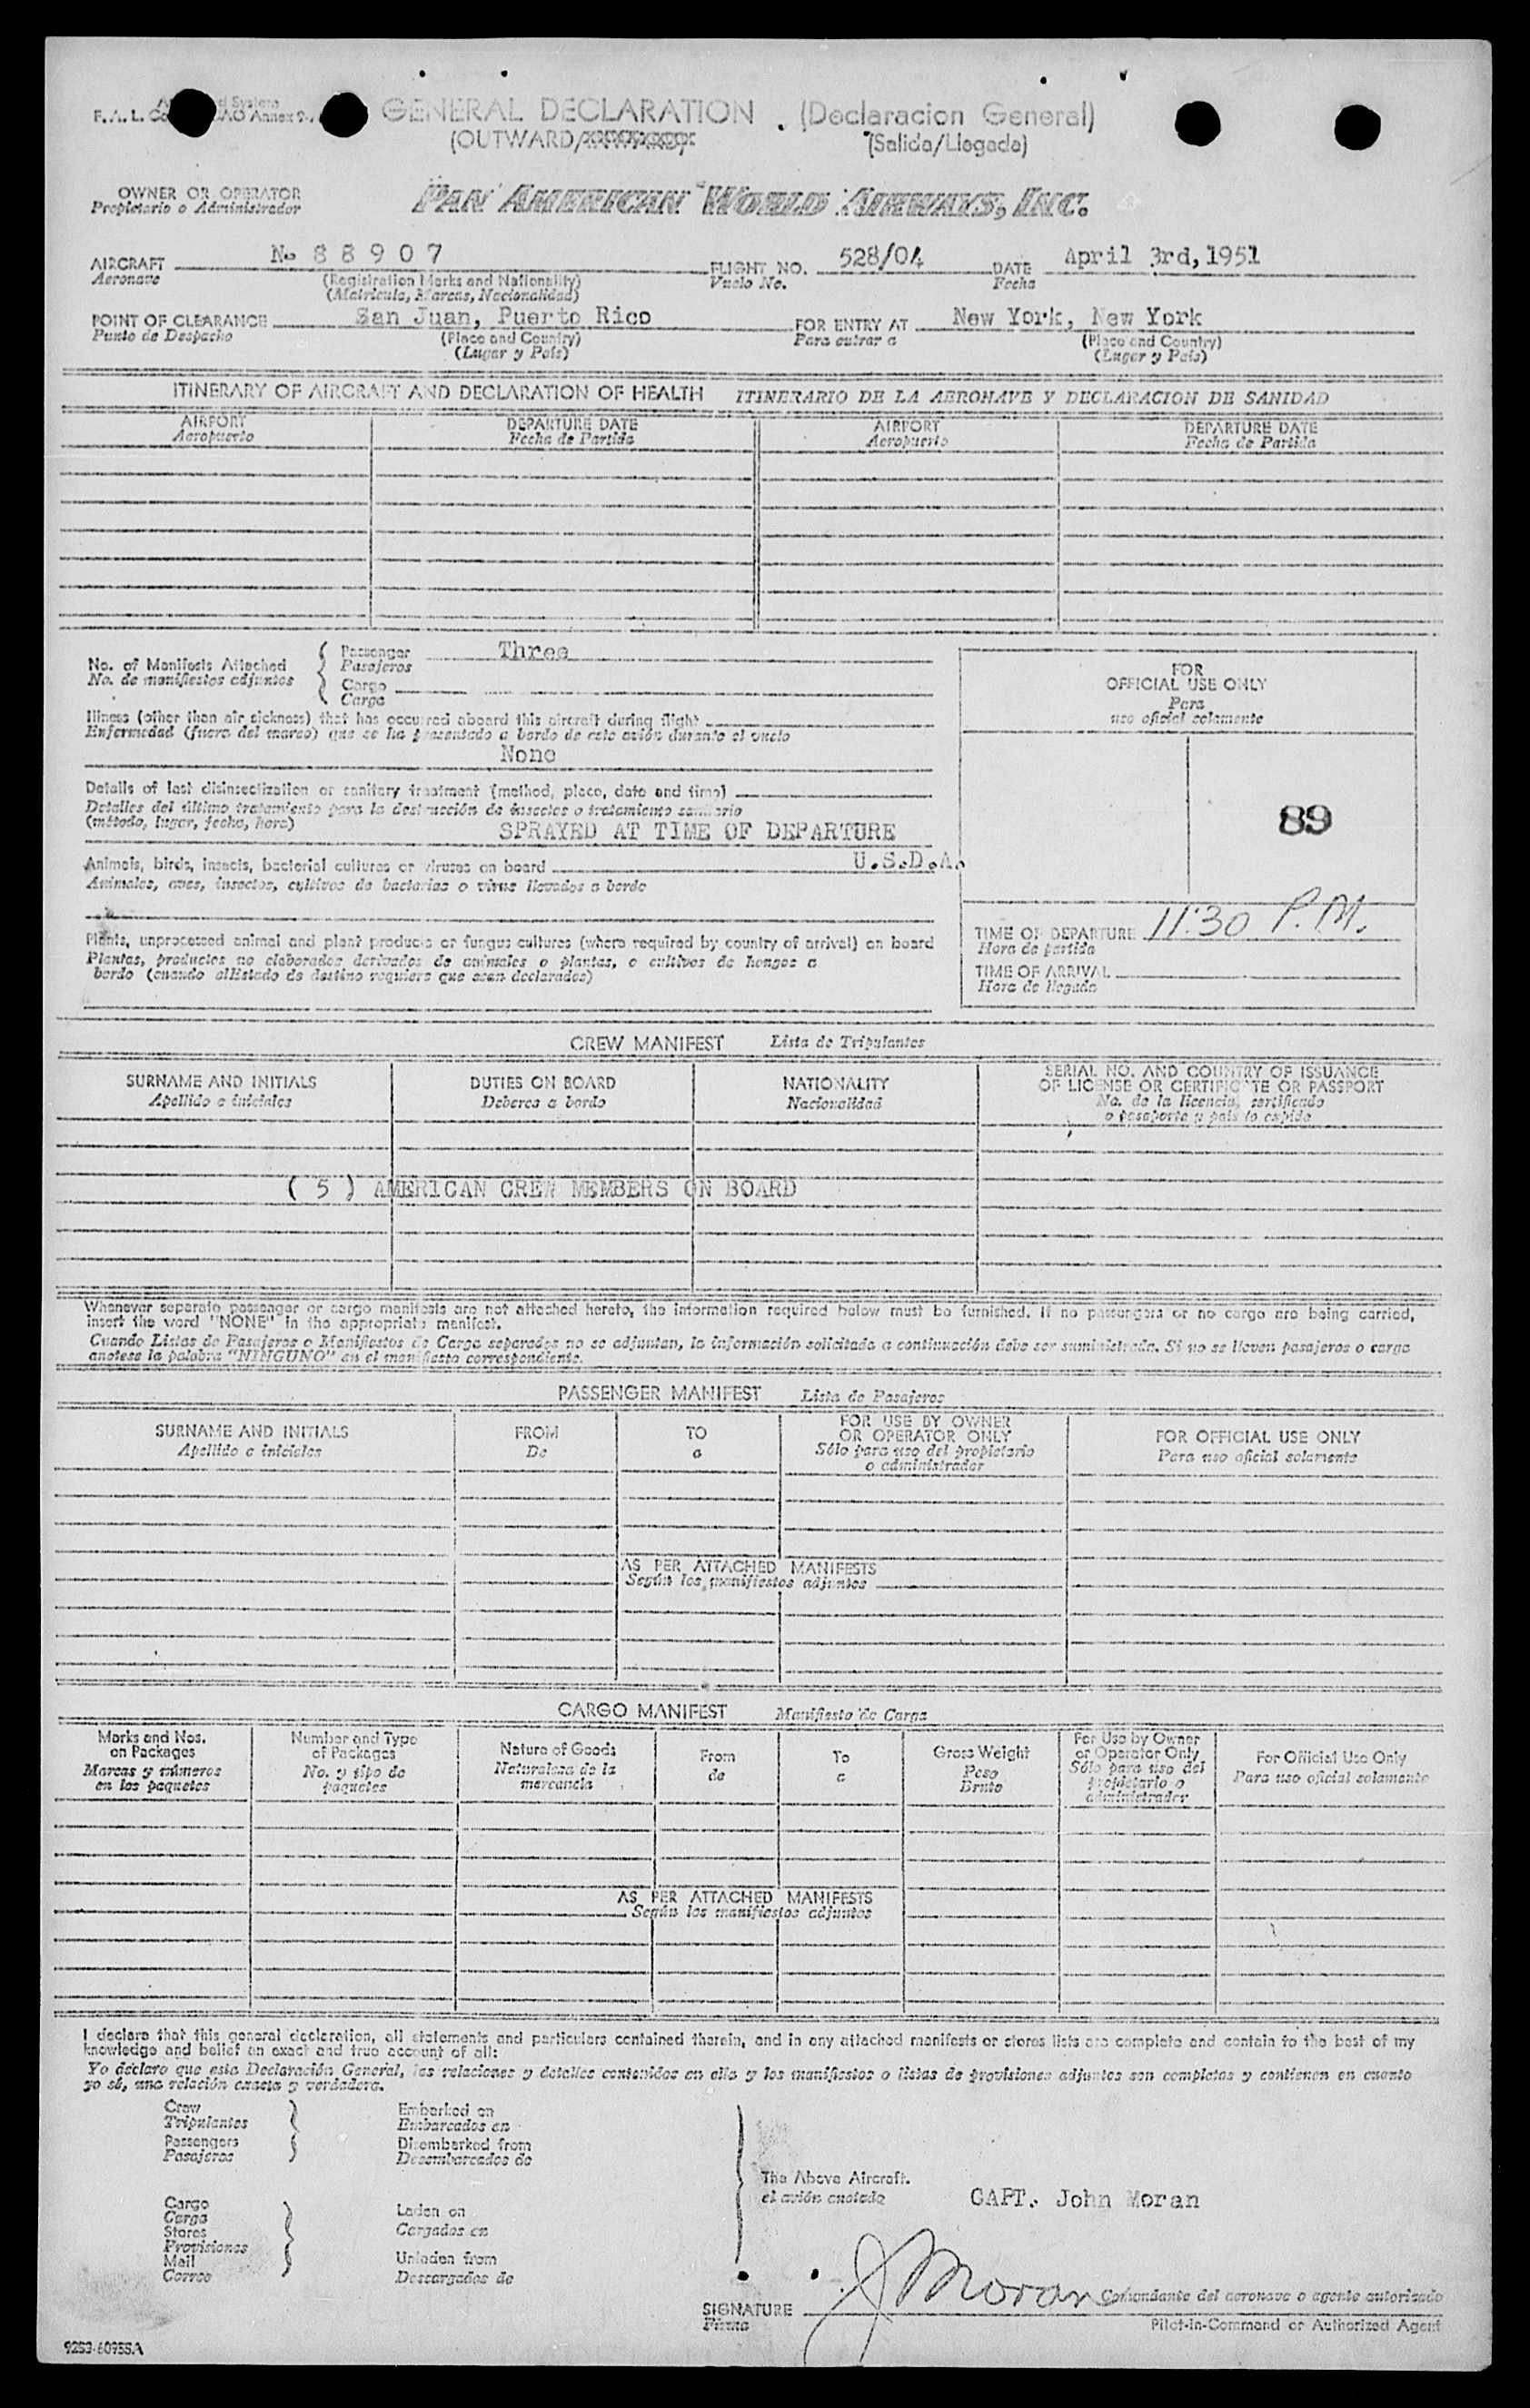 F. A. L. ICAO Annex 9
GENERAL DECLARATION (Declaracion General)
(OUTWARD/ (Salida/Llegada)
OWNER OR OPERATOR
Propietario o Administrador
PAN AMERICAN WORLD AIRWAYS, INC.
AIRCRAFT No 8 8 9 0 7 FLIGHT NO. 528/04 DATE April 3rd,1951
Aeronave (Registration Marks and Nationality) Vuelo No. Fecha
(Matricula, Marcas, Nacionalidad)
POINT OF CLEARANCE San Juan, Puerto Rico FOR ENTRY AT New York, New York
Punto de Despacho (Place and Country) Para entrar a (Place and Country)
(Lugar y País) (Lugar y País)
ITINERARY OF AIRCRAFT AND DECLARATION OF HEALTH ITINERARIO DE LA AERONAVE Y DECLARACION DE SANIDAD
AIRPORT DEPARTURE DATE AIRPORT DEPARTURE DATE
Aeropuerto Fecha de Partida Aeropuerto Fecha de Partida
No. of Manifests Attached Passenger Three
No. de manifiestos adjuntos Pasajeros
Cargo
Carga
FOR
OFFICIAL USE ONLY
Para
uso oficial solamente
Illness (other than air sickness) that has occurred aboard this aircraft during flight
Enfermedad (fuera del mareo) que se ha presentado a bordo de este avión durante el vuelo
None
Details of last disinsectization or sanitary treatment (method, place, date and time)
Detalles del último tratamiento para la destrucción de insectos o tratamiento sanitario
(método, lugar, fecha, hora)
SPRAYED AT TIME OF DEPARTURE
89
Animals, birds, insects, bacterial cultures or viruses on board U.S.D.A.
Animales, aves, insectos, cultivos de bacterias o virus llevados a bordo
Plants, unprocessed animal and plant products or fungus cultures (where required by country of arrival) on board
Plantas, productos no elaborados derivados de animales o plantas, o cultivos de hongos a
bordo (cuando elEstado de destino requiere que sean declarados)
TIME OF DEPARTURE 11:30 P.M.
Hora de partida
TIME OF ARRIVAL
Hora de llegada
CREW MANIFEST Lista de Tripulantes
SURNAME AND INITIALS DUTIES ON BOARD NATIONALITY SERIAL NO. AND COUNTRY OF ISSUANCE
OF LICENSE OR CERTIFICATE OR PASSPORT
Apellido e iniciales Deberes a bordo Nacionalidad No. de la licencia, certificado
o pasaporte y país lo expide
( 5 ) AMERICAN CREW MEMBERS ON BOARD
Whenever separate passenger or cargo manifests are not attached hereto, the information required below must be furnished. If no passengers or no cargo are being carried,
insert the word "NONE" in the appropriate manifest.
Cuando Listas de Pasajeros o Manifiestos de Carga separados no se adjuntan, la información solicitada a continuación debe ser suministrada. Si no se lleven pasajeros o carga
anotese la palabra "NINGUNO" en el manifiesto correspondiente.
PASSENGER MANIFEST Lista de Pasajeros
SURNAME AND INITIALS FROM TO FOR USE BY OWNER
OR OPERATOR ONLY FOR OFFICIAL USE ONLY
Apellido e iniciales De a Sólo para uso del propietario
o administrador Para uso oficial solamente
AS PER ATTACHED MANIFESTS
Según los manifiestos adjuntos
CARGO MANIFEST Manifiesto de Carga
Marks and Nos.
on Packages
Marcas y números
en los paquetes
Number and Type
of Packages
No. y tipo de
paquetes
Nature of Goods
Naturaleza de la
mercancía
From
de
To
a
Gross Weight
Peso
Bruto
For Use by Owner
or Operator Only
Sólo para uso del
propietario o
administrador
For Official Use Only
Para uso oficial solamente
AS PER ATTACHED MANIFESTS
Según los manifiestos adjuntos
I declare that this general declaration, all statements and particulars contained therein, and in any attached manifests or stores lists are complete and contain to the best of my
knowledge and belief an exact and true account of all:
Yo declaro que esta Declaración General, las relaciones y detalles contenidos en ella y los manifiestos o listas de provisiones adjuntos son completos y contienen en cuanto
yo sé, una relación exacta y verdadera.
Crew Embarked on
Tripulantes Embarcados en
Passengers Disembarked from
Pasajeros Desembarcados de
The Above Aircraft.
el avión anotado
CAPT. John Moran
Cargo
Carga Laden on
Stores Cargados en
Provisiones
Mail Unladen from
Correo Descargados de
J Moran
Comandante del aeronave o agente autorizado
SIGNATURE
Firma
Pilot-in-Command or Authorized Agent
9253-6095SA